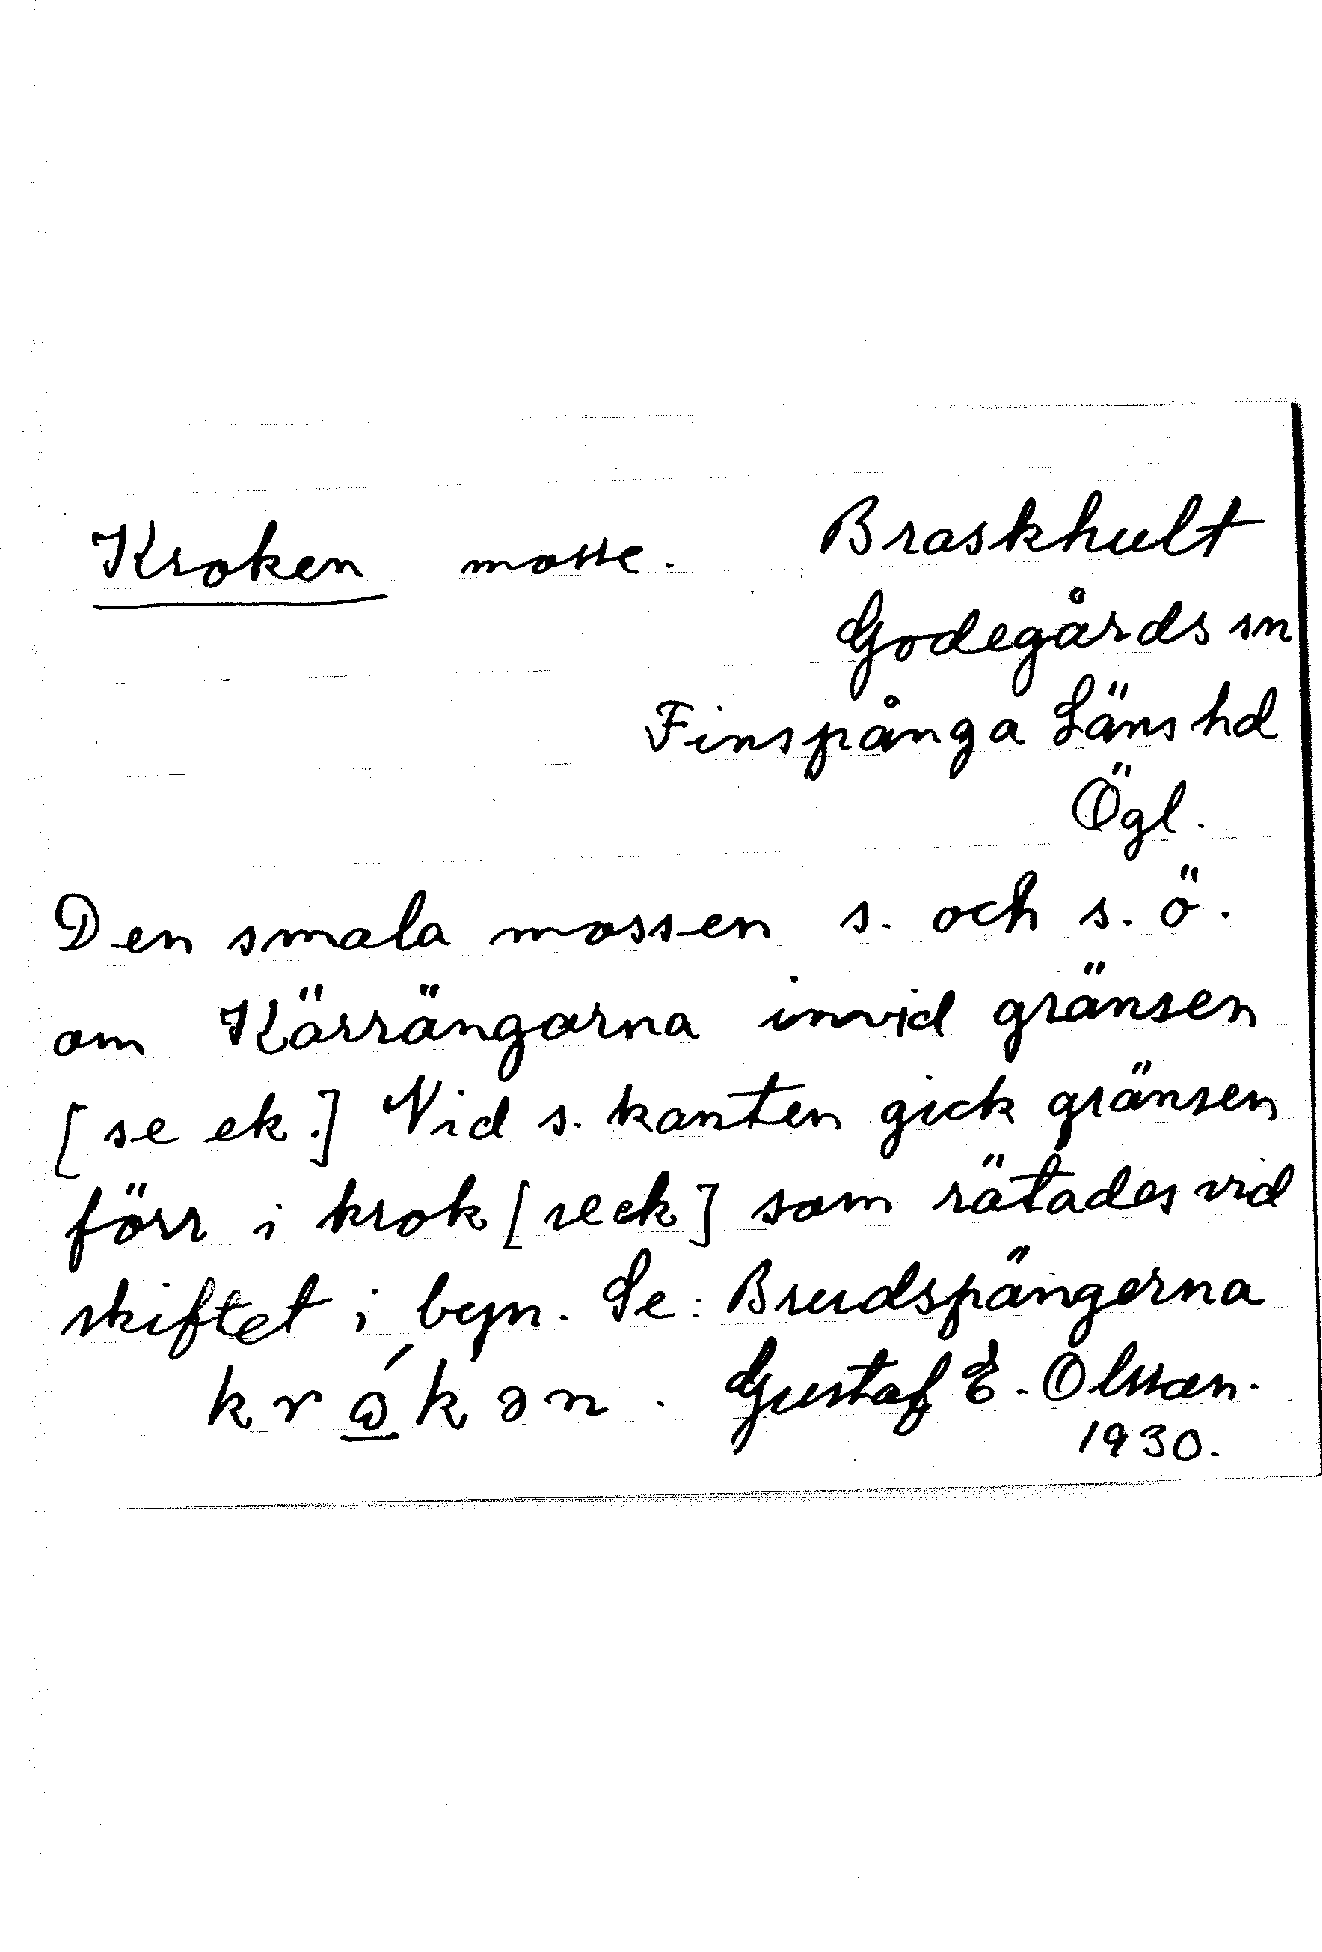 Kroken mosse. Braskhult
Godegårds sn
Finspånga Läns hd
Ögl.
Den smala mossen s. och s.ö.
om Kärrängarna invid gränsen
[se ek.] Vid s. kanten gick gränsen
förr i krok [se ek] som rätades vid
skiftet i byn. Se: Brudspängerna
krɷ́kən. Gustaf E. Olsson.
1930.